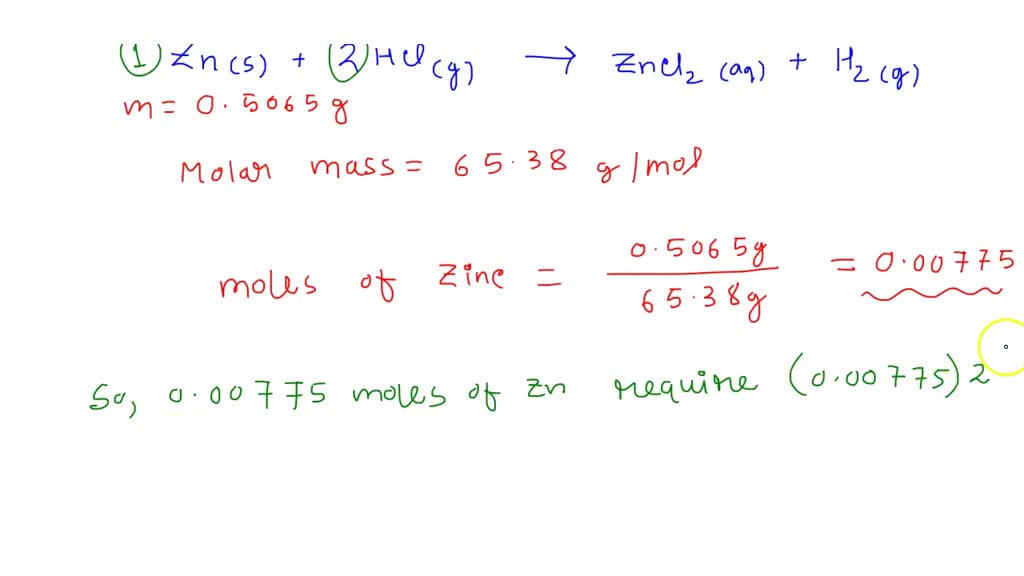 (1) Zn(s) + (2) HCl(g) → ZnCl₂ (aq) + H₂(g)
m = 0.5065g
Molar mass = 65.38 g/mol
moles of zinc = 0.5065g / 65.38g = 0.00775
So, 0.00775 moles of Zn require (0.00775)2